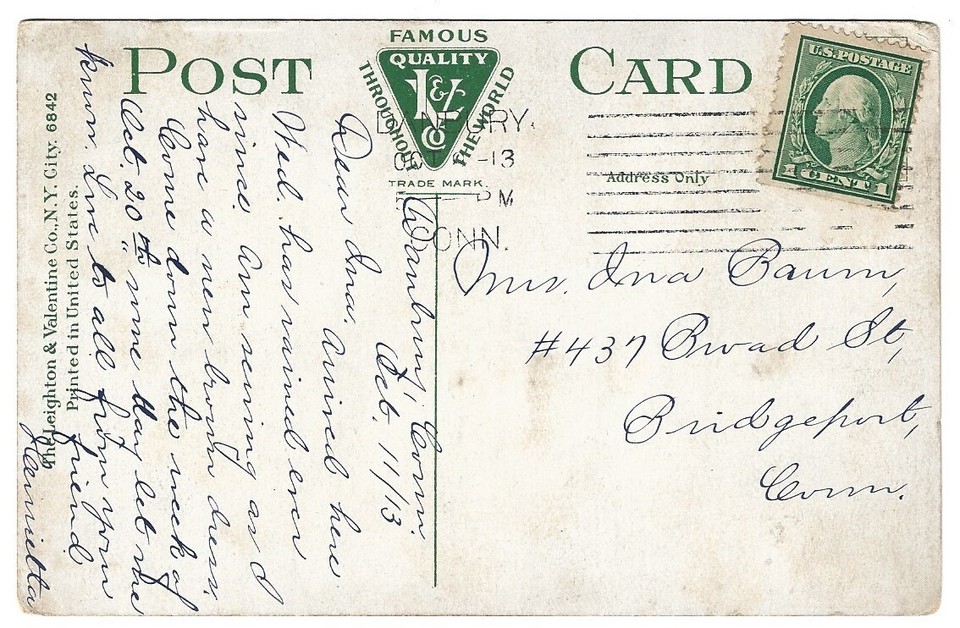 POST CARD
FAMOUS
QUALITY
L & V
Co
THROUGHOUT
THE WORLD
TRADE MARK.
DANBURY
OCT -13
PM
CONN.
U.S. POSTAGE
1 CENT 1
Address Only
Mrs. Ina Baum,
#437 Broad St,
Bridgeport,
Conn.
Danbury, Conn.
Oct. 11/13
Dear Ina. Arrived here
Wed. has rained ever
since. Am sewing as I
have a new brown dress.
Come down the week of
Oct. 20th
May let me
know. Love to all from your
friend
Henrietta
The Leighton & Valentine Co., N.Y. City. 6842
Printed in United States.